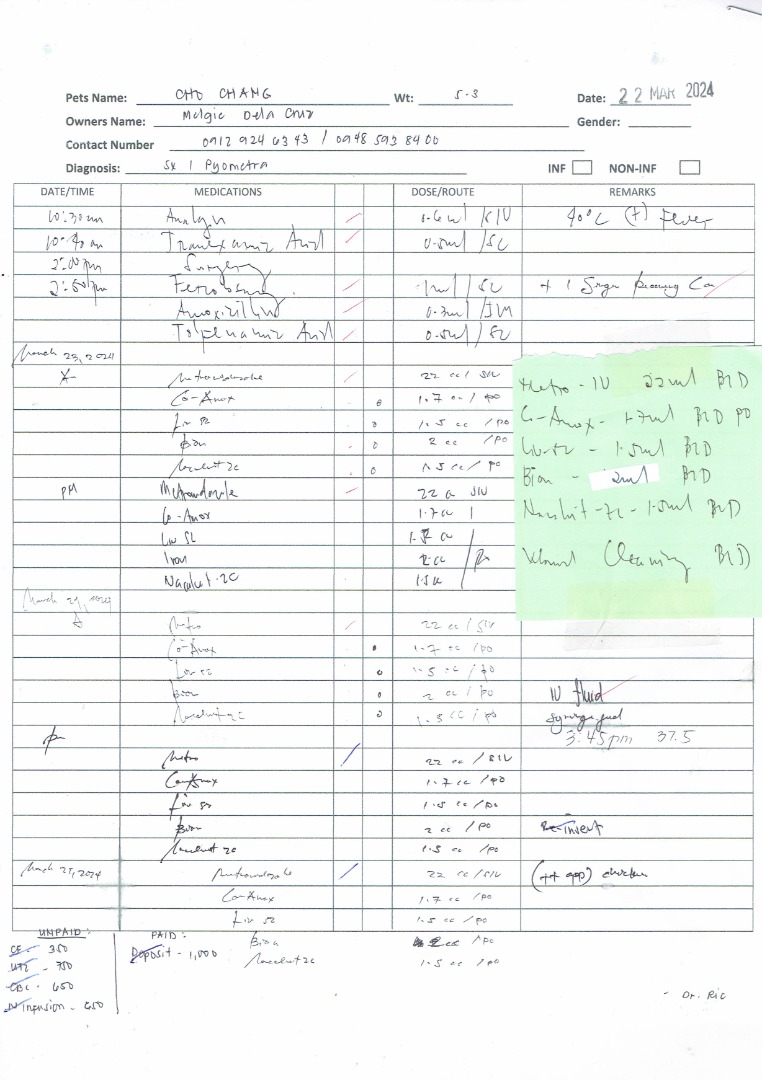 Pets Name: CHO CHANG Wt: 5.3 Date: 22 MAR 2024
Owners Name: Melgie Dela Cruz Gender:
Contact Number 0912 924 6343 / 0948 593 8400
Diagnosis: Sx | Pyometra INF NON-INF
DATE/TIME MEDICATIONS DOSE/ROUTE REMARKS
10:30 am Analgin 0.6 ml / SIV 40°C (+) Fever
10:40 am Tranexamic Acid 0.5ml / SC
2:00 pm Surgery
2:50 pm 1ml / SC + 1
Amoxicillin 0.3ml / IM
Tolfenamic Acid 0.5ml / SC
March 23, 2024
Metronidazole 22 cc / SIV
Co-Amox 1.7 cc / po
Liv 52 1.5 cc / po
2 cc / po
1.5 cc / po
PM Metronidazole 22 cc SIV
Co-Amox 1.7 cc
Liv 52 1.5 cc
Iron 2 cc
Nacalvit-2C 1.5 cc
Metro - IV 22ml BID
Co-Amox - 1.7ml BID PO
Liv-52 - 1.5ml BID
Bion - 2ml BID
1.5ml BID
Wound Cleaning BID
March 24, 2024
Metro 22 cc / SIV
Co-Amox 1.7 cc / po
Liv 52 1.5 cc / po
2 cc / po IV fluid
1.5 cc / po syringe feed
3:45pm 37.5
pm
Metro 22 cc / SIV
Co-Amox 1.7 cc / po
Liv 52 1.5 cc / po
2 cc / po Re-insert
1.5 cc / po
March 25, 2024 Metronidazole 22 cc / SIV (++ app) chicken
Co-Amox 1.7 cc / po
Liv 52 1.5 cc / po
2 cc / po
1.5 cc / po
UNPAID:
CF - 350
UTZ - 750
CBC - 650
IV Infusion - 650
PAID:
Deposit - 1,000
- Dr. Ric